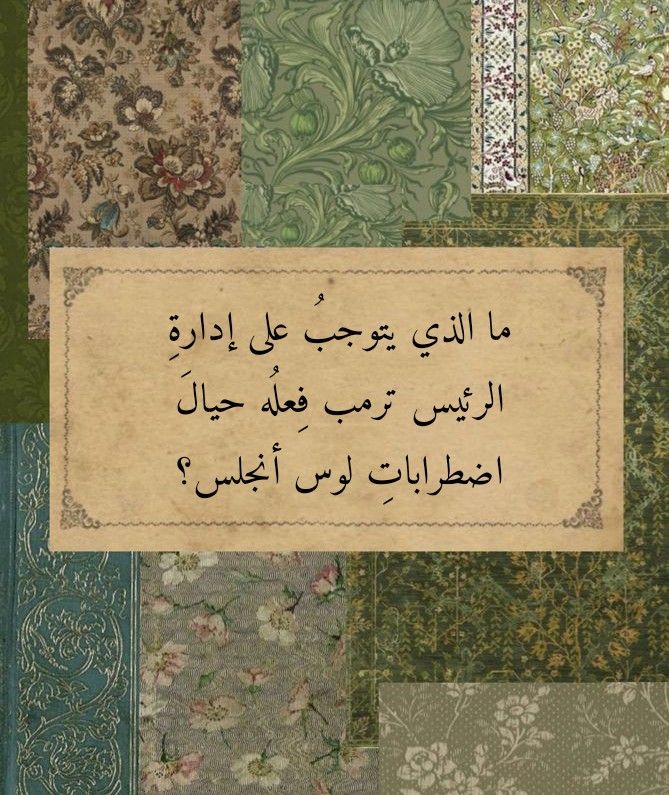 ما الذي يتوجبُ على إدارةِ
الرئيس ترمب فِعلُه حيالَ
اضطراباتِ لوس أنجلس؟